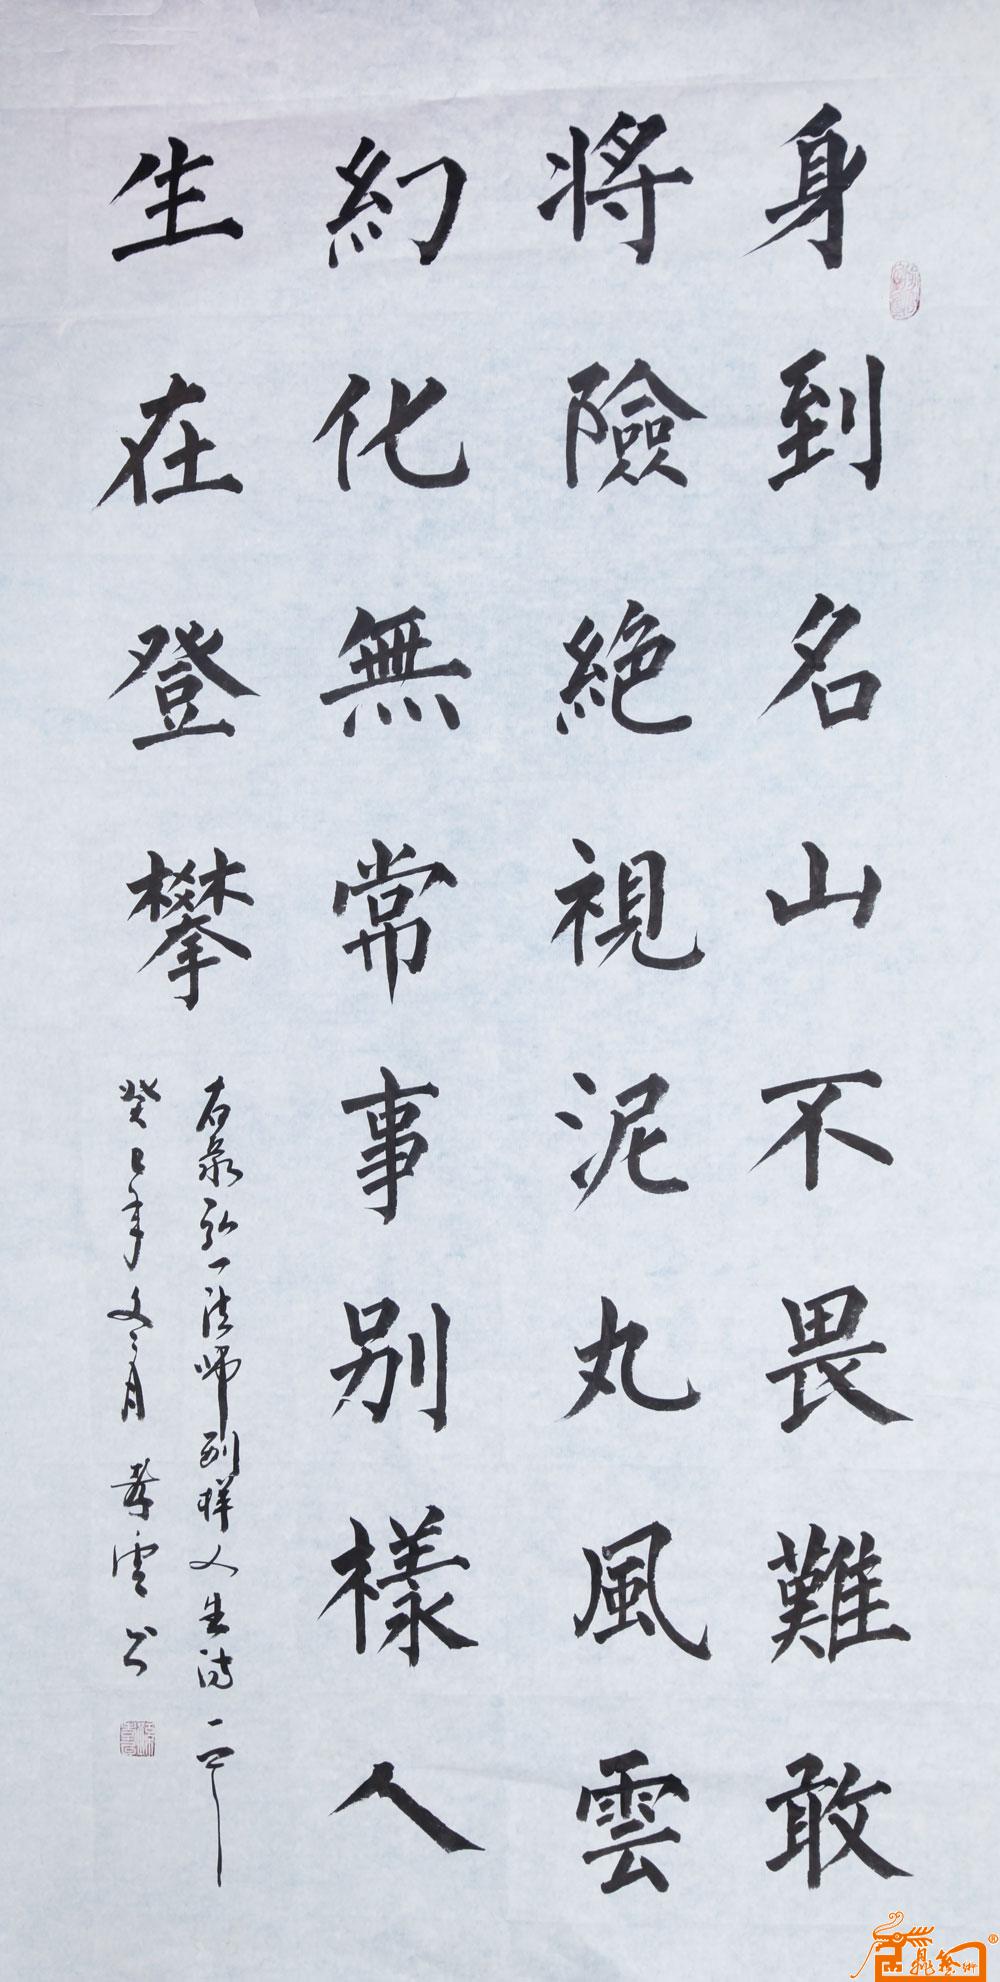 身到名山不畏難敢
將險絕視泥丸風雲
幻化無常事別樣人
生在登攀
右录弘一法師别样人生诗一首
癸巳年月雲书